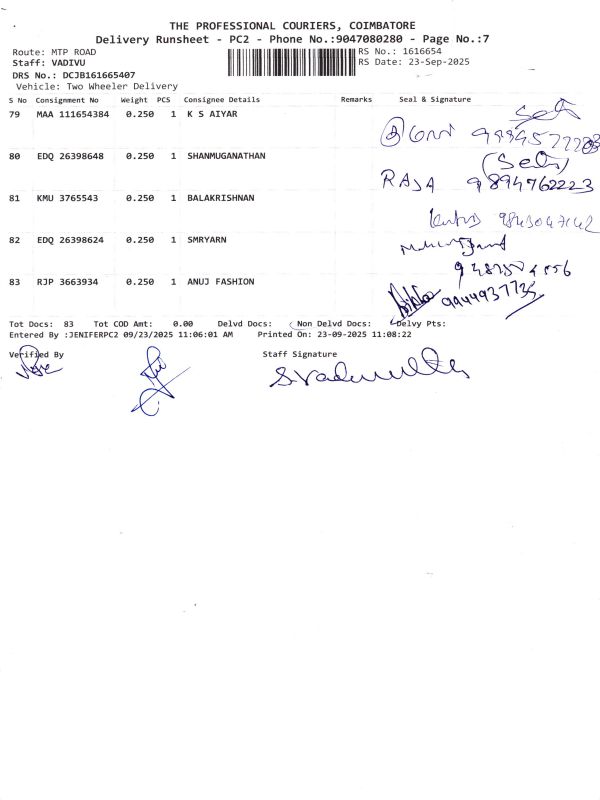 THE PROFESSIONAL COURIERS, COIMBATORE
Delivery Runsheet - PC2 - Phone No.:9047080280 - Page No.:7
Route: MTP ROAD
RS No.: 1616654
Staff: VADIVU
RS Date: 23-Sep-2025
DRS No.: DCJB161665407
Vehicle: Two Wheeler Delivery
S No Consignment No Weight PCS Consignee Details Remarks Seal & Signature
79 MAA 111654384 0.250 1 K S AIYAR
80 EDQ 26398648 0.250 1 SHANMUGANATHAN
RAJA 9894762223
81 KMU 3765543 0.250 1 BALAKRISHNAN
9843047142
82 EDQ 26398624 0.250 1 SMRYARN
83 RJP 3663934 0.250 1 ANUJ FASHION
9444937735
Tot Docs: 83 Tot COD Amt: 0.00 Delvd Docs: Non Delvd Docs: Delvy Pts:
Entered By :JENIFERPC2 09/23/2025 11:06:01 AM Printed On: 23-09-2025 11:08:22
Verified By Staff Signature